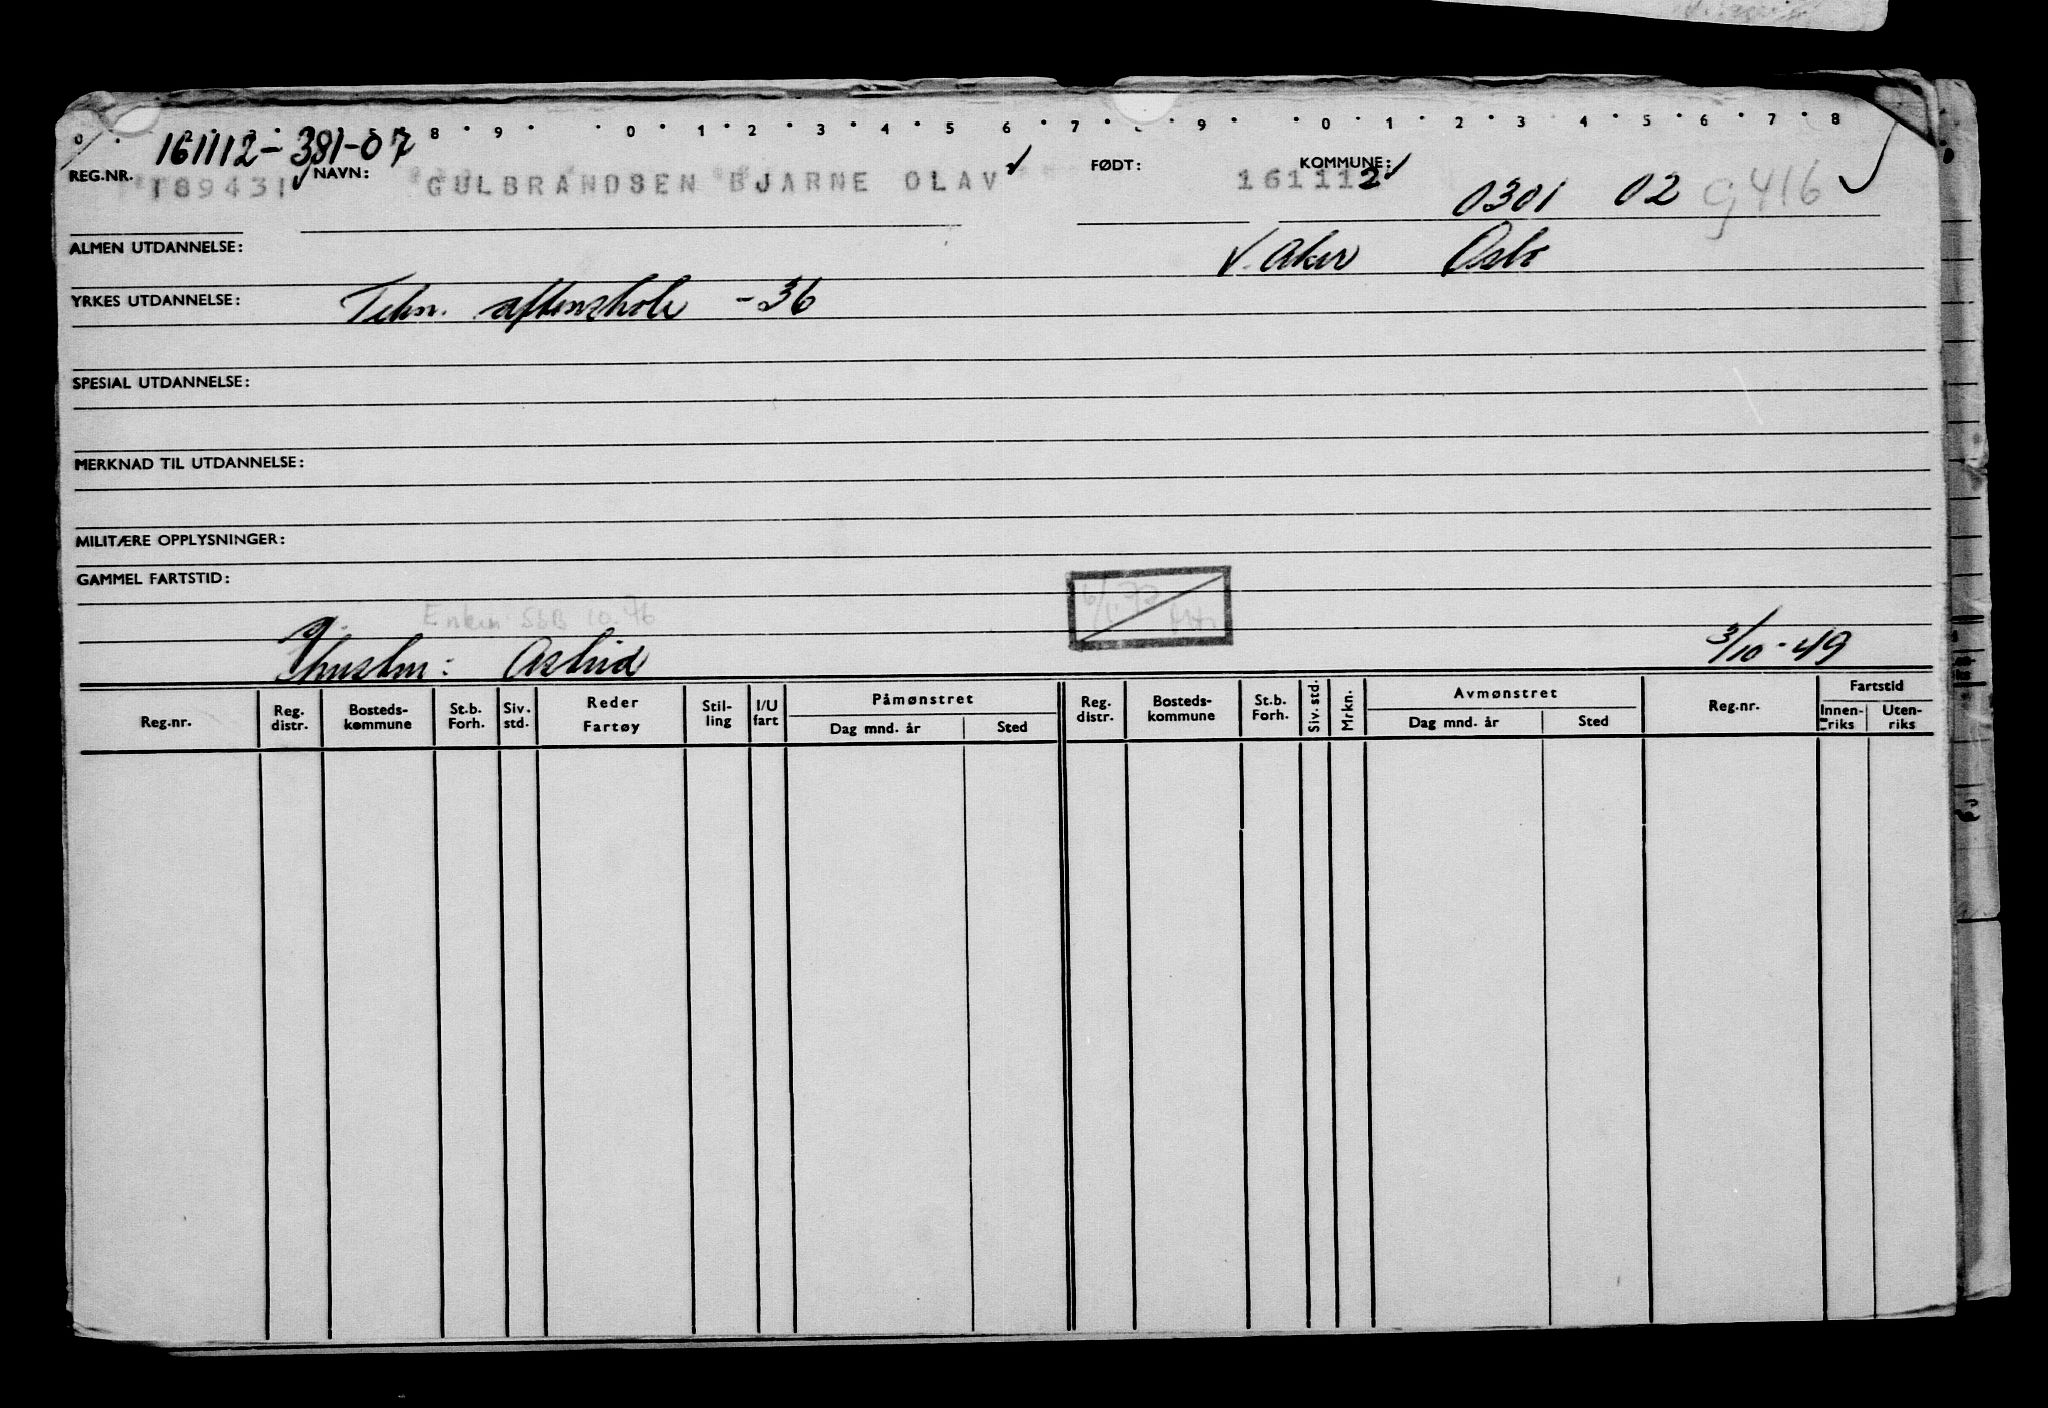 0 8 9 0 1 2 3 4 5 6 7 9 0 1 2 3 4 5 6 7 8
161112-381-07
REG.NR. 189431 NAVN: GULBRANDSEN BJARNE OLAV FØDT: 161112 KOMMUNE: 0301 02 G 416
ALMEN UTDANNELSE: V. Aker Oslo
YRKES UTDANNELSE: Tekn. aftenskole -36
SPESIAL UTDANNELSE:
MERKNAD TIL UTDANNELSE:
MILITÆRE OPPLYSNINGER:
GAMMEL FARTSTID:
Enken SbB 10.76
g. hustru: Astrid 3/10-49
Reg.nr. Reg. distr. Bosteds-kommune St.b. Forh. Siv. std. Reder Fartøy Stil-ling I/U fart Påmønstret Dag mnd. år Sted Reg. distr. Bosteds-kommune St.b. Forh. Siv. std. Mrkn. Avmønstret Dag mnd. år Sted Reg.nr. Fartstid Innen-riks Uten-riks